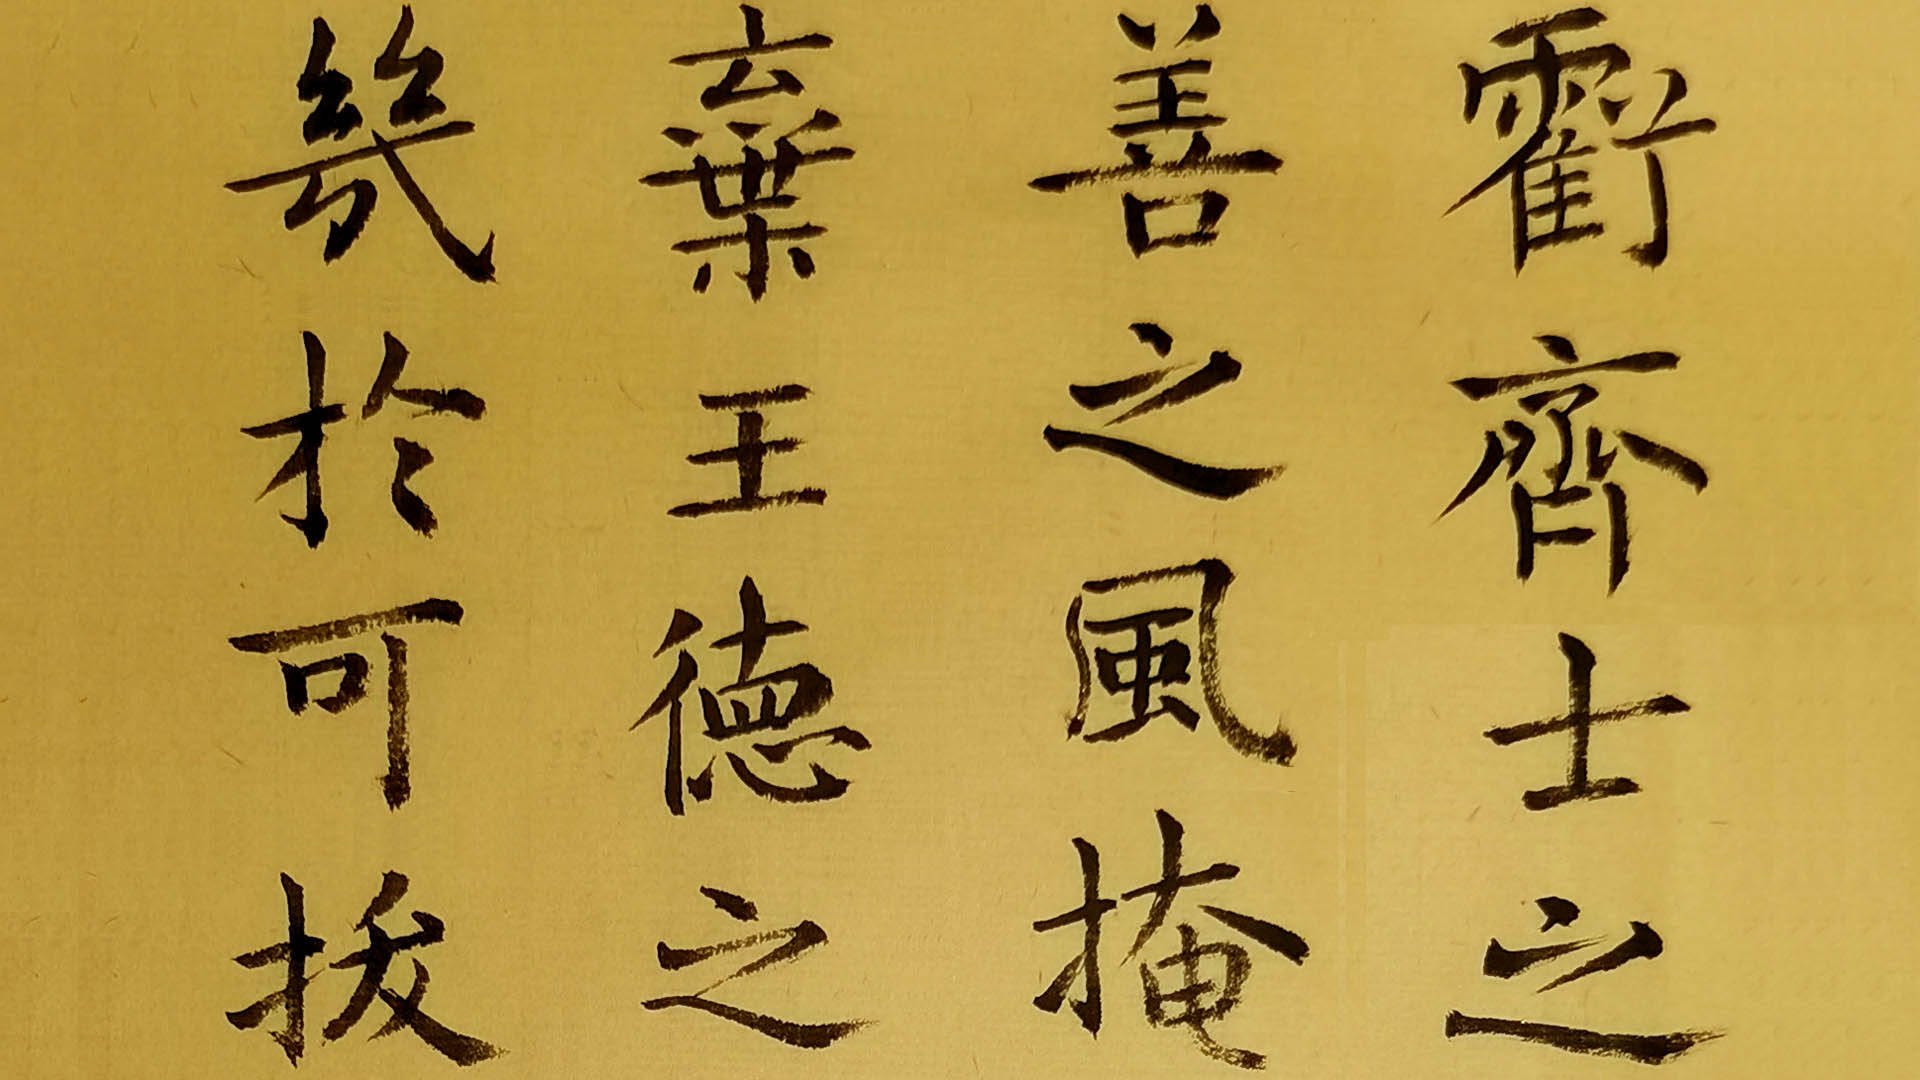 虧齊士之
善之風掩
棄王德之
幾於可拔